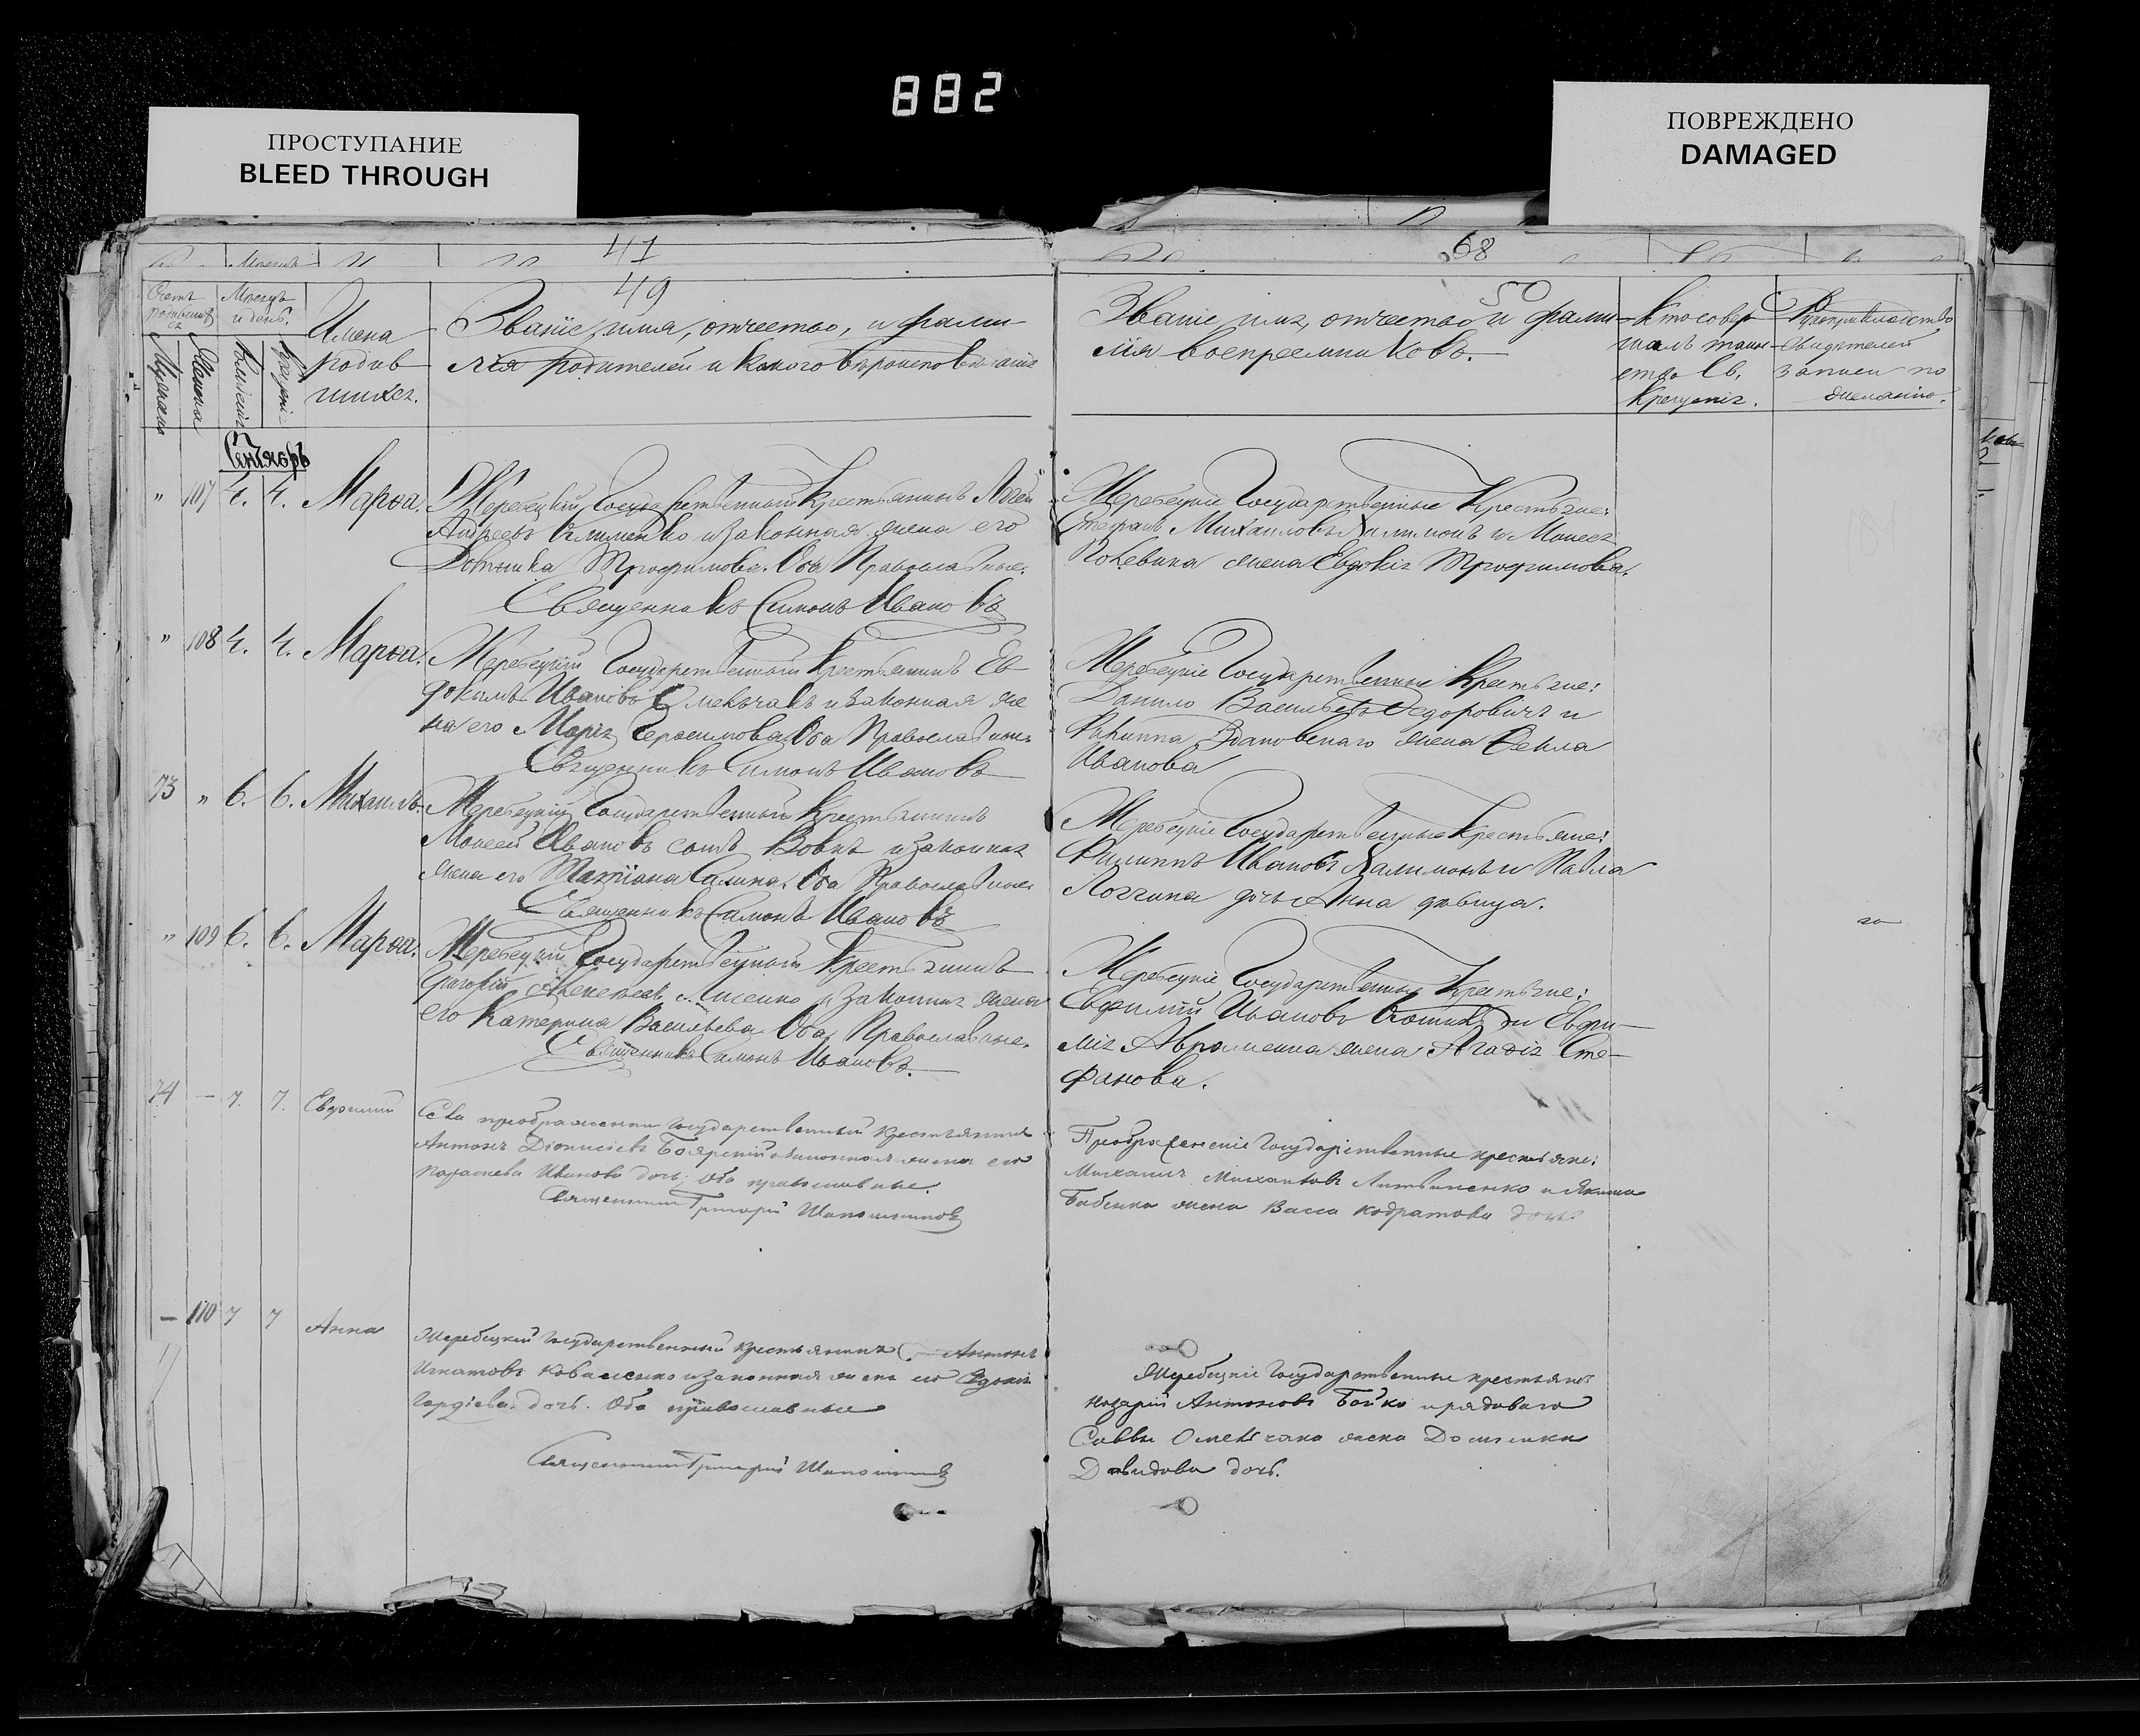 882
ПРОСТУПАНИЕ
BLEED THROUGH
ПОВРЕЖДЕНО
DAMAGED
41
68
49
50
Счетъ родившихся
Мѣсяцъ и день.
Имена родив-шихся.
Званіе, имя, отчество, и фами-
лія родителей и какого вѣроисповѣданія
Званіе имя, отчество и фами-
лія воспреемниковъ.
Кто совер-
шалъ таин-
ство Св.
Крещенія.
Рукоприкладство
свидѣтелей
записи по
желанію.
Сентябрь
" 107 4. 4. Марѳа. Жеребецкій Государственный Крестьянинъ
Андреевъ Клименко и законная жена его
Домника Трофимова. Оба Православные.
Священникъ Симонъ Ивановъ
Жеребецкіе Государственные Крестьяне:
Стефанъ Михаиловъ Халимонъ и Моисея
жена Евдокія Трофимова.
" 108 4. 4. Марѳа. Жеребецкій Государственный Крестьянинъ Ев-
докимъ Ивановъ Омельчакъ и законная же
на его Марія Герасимова. Оба Православные
Священникъ Симонъ Ивановъ
Жеребецкіе Государственные Крестьяне:
Данило Васильевъ Федоровичъ и
Здановскаго жена Текла
Иванова
73 " 6. 6. Михаилъ. Жеребецкій Государственный Крестьянинъ
Моисей Ивановъ сынъ Вовкъ и законная
жена его Татіана Савина. Оба Православные.
Священникъ Симонъ Ивановъ
Жеребецкіе Государственные Крестьяне:
Филиппъ Ивановъ Халимонъ и Павла
дочь Анна дѣвица.
" 109 6. 6. Марѳа. Жеребецкій Государственный Крестьянинъ
Григорій Алексеевъ Лисенко и законная жена
его Катерина Васильева. Оба Православные.
Священникъ Симонъ Ивановъ.
Жеребецкіе Государственные Крестьяне:
Евфимій Ивановъ и Евфи-
мія Авраменка жена Агафія Сте-
фанова.
74 — 7. 7. Евфимій
Села преображенки государственный крестьянинъ
Антонъ Діонисіевъ Боярскій и законная жена его
Параскева Иванова дочь; оба православные.
Священникъ Григорій Шапошниковъ
Преображенскіе Государственные крестьяне:
Михаилъ Михаиловъ Литвиненко и Якима
Бабенка жена Васса Кодратова дочь.
— 110 7 7 Анна
Жеребецкій Государственный крестьянинъ Антонъ
Игнатовъ Коваленко и законная жена его Евдокія
Гордіева дочь. Оба православные
Священникъ Григорій Шапошниковъ
Жеребецкіе Государственные крестьяне:
Назарій Антоновъ Бойко и рядоваго
Саввы Омельчака жена Домника
Давидова дочь.